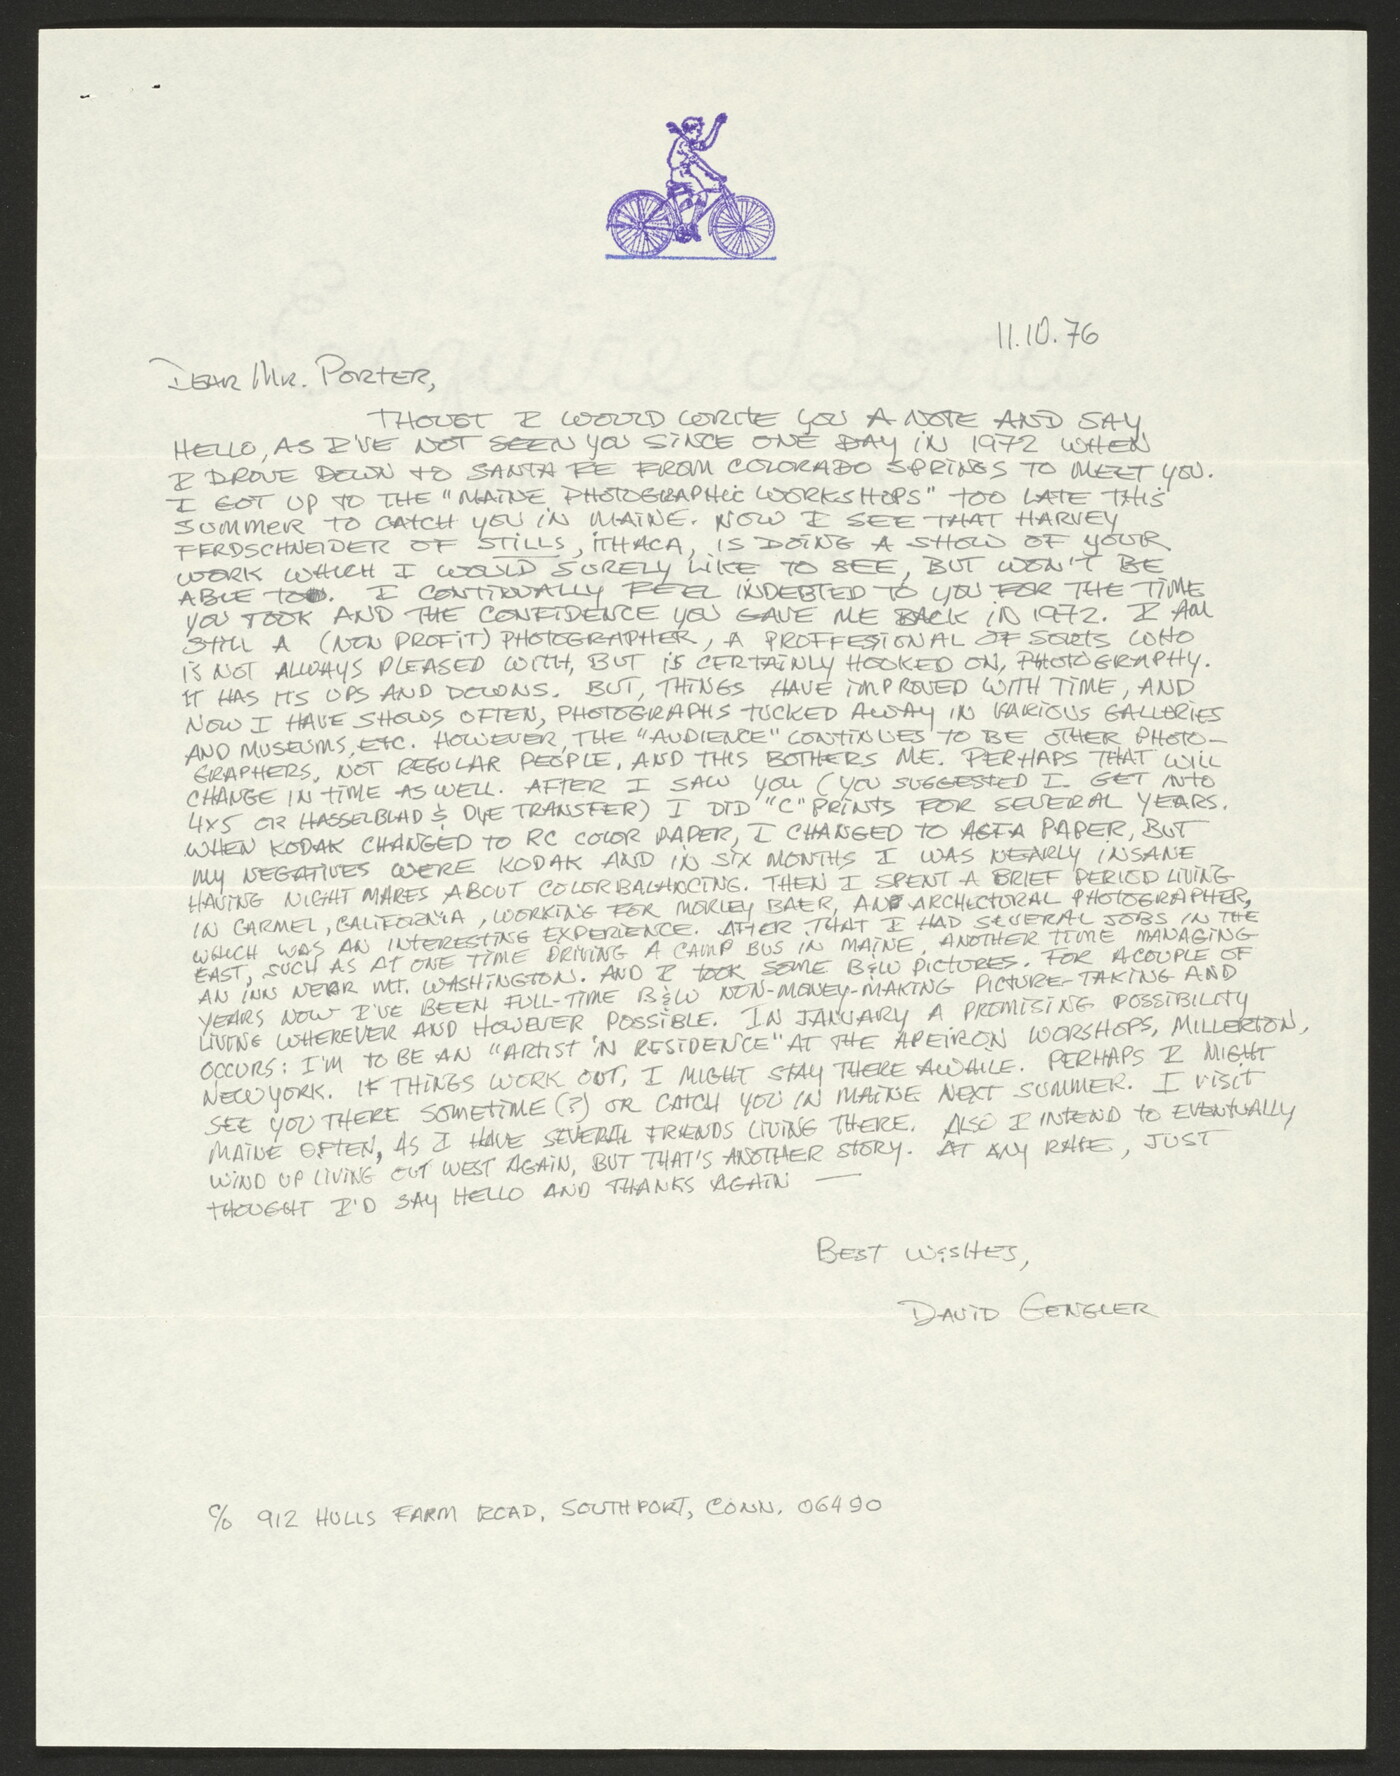 11.10.76
DEAR MR. PORTER,
THOUGT I WOULD WRITE YOU A NOTE AND SAY
HELLO, AS I'VE NOT SEEN YOU SINCE ONE DAY IN 1972 WHEN
I DROVE DOWN TO SANTA FE FROM COLORADO SPRINGS TO MEET YOU.
I GOT UP TO THE "MAINE PHOTOGRAPHIC WORKSHOPS" TOO LATE THIS
SUMMER TO CATCH YOU IN MAINE. NOW I SEE THAT HARVEY
FERDSCHNEIDER OF STILLS, ITHACA, IS DOING A SHOW OF YOUR
WORK WHICH I WOULD SURELY LIKE TO SEE, BUT WON'T BE
ABLE TO. I CONTINUALLY FEEL INDEBTED TO YOU FOR THE TIME
YOU TOOK AND THE CONFIDENCE YOU GAVE ME BACK IN 1972. I AM
STILL A (NON PROFIT) PHOTOGRAPHER, A PROFFESSIONAL OF SORTS WHO
IS NOT ALWAYS PLEASED WITH, BUT IS CERTAINLY HOOKED ON, PHOTOGRAPHY.
IT HAS ITS UPS AND DOWNS. BUT, THINGS HAVE IMPROVED WITH TIME, AND
NOW I HAVE SHOWS OFTEN, PHOTOGRAPHS TUCKED AWAY IN VARIOUS GALLERIES
AND MUSEUMS, ETC. HOWEVER, THE "AUDIENCE" CONTINUES TO BE OTHER PHOTO-
GRAPHERS, NOT REGULAR PEOPLE, AND THIS BOTHERS ME. PERHAPS THAT WILL
CHANGE IN TIME AS WELL. AFTER I SAW YOU (YOU SUGGESTED I GET INTO
4X5 OR HASSELBLAD & DYE TRANSFER) I DID "C" PRINTS FOR SEVERAL YEARS.
WHEN KODAK CHANGED TO RC COLOR PAPER, I CHANGED TO AGFA PAPER, BUT
MY NEGATIVES WERE KODAK AND IN SIX MONTHS I WAS NEARLY INSANE
HAVING NIGHTMARES ABOUT COLORBALANCING. THEN I SPENT A BRIEF PERIOD LIVING
IN CARMEL, CALIFORNIA, WORKING FOR MORLEY BAER, AN ARCHECTORAL PHOTOGRAPHER,
WHICH WAS AN INTERESTING EXPERIENCE. AFTER THAT I HAD SEVERAL JOBS IN THE
EAST, SUCH AS AT ONE TIME DRIVING A CAMP BUS IN MAINE, ANOTHER TIME MANAGING
AN INN NEAR MT. WASHINGTON. AND I TOOK SOME B&W PICTURES. FOR A COUPLE OF
YEARS NOW I'VE BEEN FULL-TIME B&W NON-MONEY-MAKING PICTURE-TAKING AND
LIVING WHEREVER AND HOWEVER POSSIBLE. IN JANUARY A PROMISING POSSIBILITY
OCCURS: I'M TO BE AN "ARTIST IN RESIDENCE" AT THE APEIRON WORSHOPS, MILLERTON,
NEW YORK. IF THINGS WORK OUT, I MIGHT STAY THERE AWHILE. PERHAPS I MIGHT
SEE YOU THERE SOMETIME (?) OR CATCH YOU IN MAINE NEXT SUMMER. I VISIT
MAINE OFTEN, AS I HAVE SEVERAL FRIENDS LIVING THERE. ALSO I INTEND TO EVENTUALLY
WIND UP LIVING OUT WEST AGAIN, BUT THAT'S ANOTHER STORY. AT ANY RATE, JUST
THOUGHT I'D SAY HELLO AND THANKS AGAIN —
BEST WISHES,
DAVID GENGLER
c/o 912 HULLS FARM ROAD, SOUTHPORT, CONN. 06490